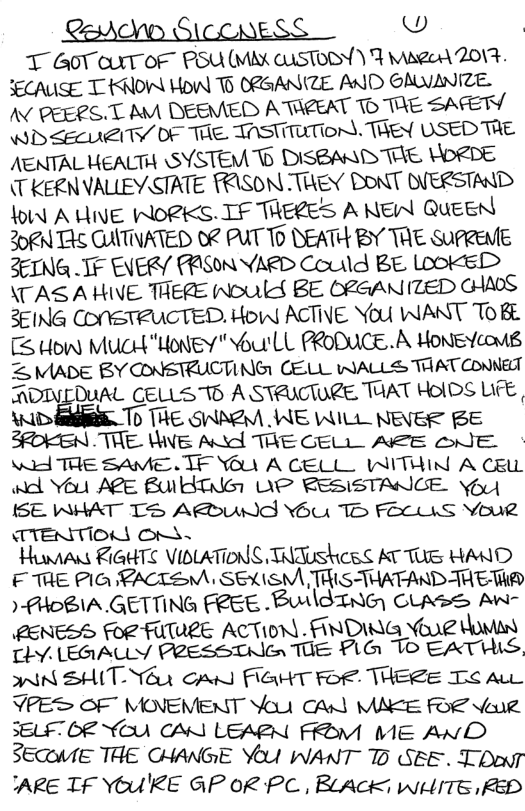 PSYCHO SICCNESS 1
I GOT OUT OF PSU (MAX CUSTODY) 7 MARCH 2017.
BECAUSE I KNOW HOW TO ORGANIZE AND GALVANIZE
MY PEERS. I AM DEEMED A THREAT TO THE SAFETY
AND SECURITY OF THE INSTITUTION. THEY USED THE
MENTAL HEALTH SYSTEM TO DISBAND THE HORDE
AT KERN VALLEY STATE PRISON. THEY DONT OVERSTAND
HOW A HIVE WORKS. IF THERE'S A NEW QUEEN
BORN ITS CULTIVATED OR PUT TO DEATH BY THE SUPREME
BEING. IF EVERY PRISON YARD COULD BE LOOKED
AT AS A HIVE THERE WOULD BE ORGANIZED CHAOS
BEING CONSTRUCTED. HOW ACTIVE YOU WANT TO BE
IS HOW MUCH "HONEY" YOU'LL PRODUCE. A HONEYCOMB
IS MADE BY CONSTRUCTING CELL WALLS THAT CONNECT
INDIVIDUAL CELLS TO A STRUCTURE THAT HOLDS LIFE,
AND FUEL TO THE SWARM. WE WILL NEVER BE
BROKEN. THE HIVE AND THE CELL ARE ONE
AND THE SAME. IF YOU A CELL WITHIN A CELL
AND YOU ARE BUILDING UP RESISTANCE YOU
USE WHAT IS AROUND YOU TO FOCUS YOUR
ATTENTION ON.
HUMAN RIGHTS VIOLATIONS, INJUSTICES AT THE HAND
OF THE PIG, RACISM, SEXISM, THIS-THAT-AND-THE-THIRD
O-PHOBIA. GETTING FREE. BUILDING CLASS AW-
ARENESS FOR FUTURE ACTION. FINDING YOUR HUMAN
ITY. LEGALLY PRESSING THE PIG TO EAT HIS,
OWN SHIT. YOU CAN FIGHT FOR. THERE IS ALL
TYPES OF MOVEMENT YOU CAN MAKE FOR YOUR
SELF. OR YOU CAN LEARN FROM ME AND
BECOME THE CHANGE YOU WANT TO SEE. I DONT
CARE IF YOU'RE GP OR PC, BLACK, WHITE, RED